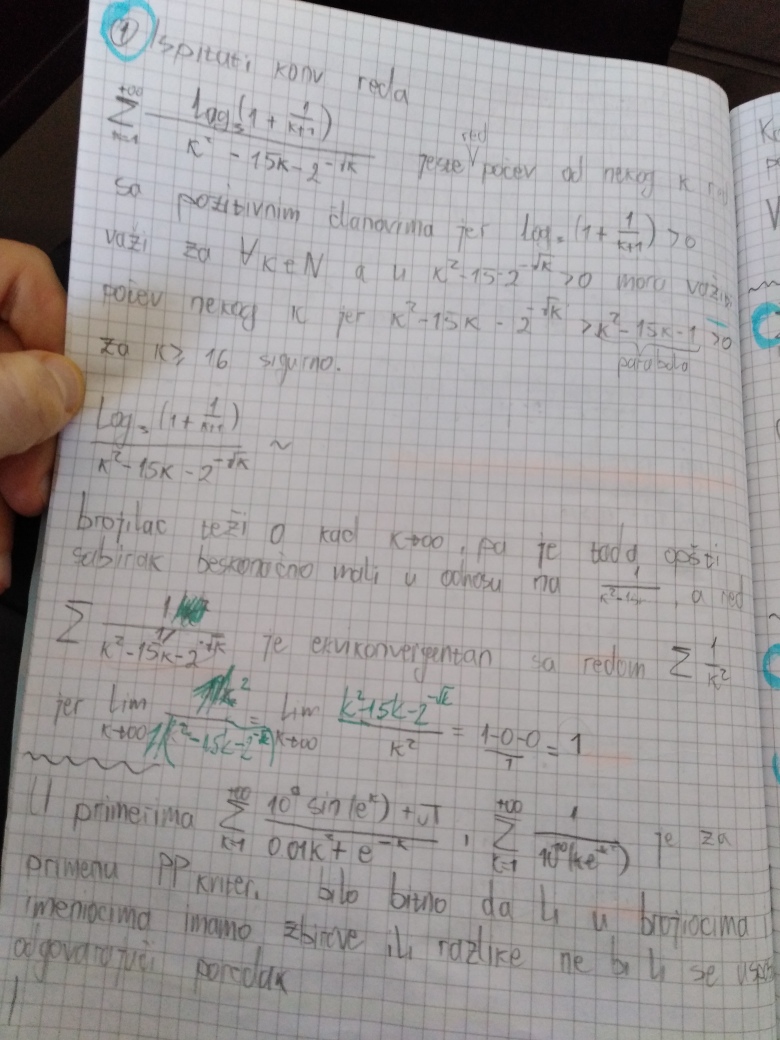 ① Ispitati konv reda
\sum_{k=1}^{+\infty} \frac{\log_3(1+\frac{1}{k+1})}{k^2-15k-2^{-\sqrt{k}}} jeste red počev od nekog k
sa pozitivnim članovima jer \log_3(1+\frac{1}{k+1})>0
važi za \forall k \in N a u k^2-15-2^{-\sqrt{k}}>0 mora važiti
počev nekog k jer k^2-15k-2^{-\sqrt{k}}>k^2-15k-1>0
parabola
za k≥16 sigurno.
\frac{\log_3(1+\frac{1}{k+1})}{k^2-15k-2^{-\sqrt{k}}} ~
brojilac teži 0 kad k→∞, pa je tada opšti
sabirak beskonačno mali u odnosu na , a red
\sum \frac{1}{k^2-15k-2^{-\sqrt{k}}} je ekvikonvergentan sa redom \sum \frac{1}{k^2}
jer \lim_{k→∞} \frac{1/k^2}{1/(k^2-15k-2^{-\sqrt{k}})} = \lim_{k→∞} \frac{k^2-15k-2^{-\sqrt{k}}}{k^2} = \frac{1-0-0}{1} = 1
U primerima \sum_{k=1}^{+\infty} , \sum_{k=1}^{+\infty} je za
primenu PP kriter. bilo bitno da li u brojiocima
imeniocima imamo zbirove ili razlike ne bi li se
odgovarajući poredak